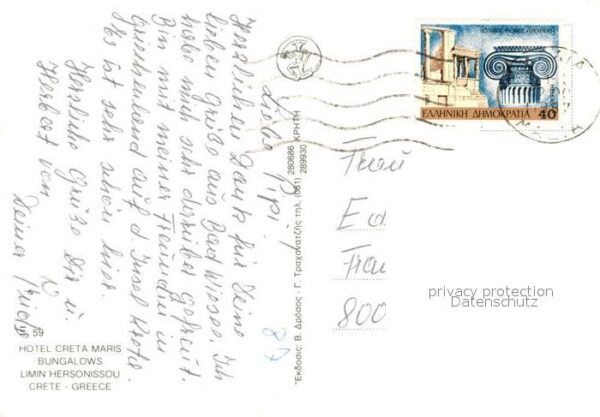 Liebe Pipi!
Herzlichen Dank für Deine
lieben Grüße aus Bad Wiessee. Ich
habe mich sehr darüber gefreut.
Bin mit meiner Freundin in
Griechenland auf d. Insel Kreta.
Es ist sehr schön hier.
Herzliche Grüße Dir u.
Herbert von
Deiner
87
59
HOTEL CRETA MARIS
BUNGALOWS
LIMIN HERSONISSOU
CRETE - GREECE
"Εκδοσις: Β. Δράσος - Γ. Τραχανατζής τηλ. (081) 280686 289930 ΚΡΗΤΗ
ΕΛΛΗΝΙΚΗ ΔΗΜΟΚΡΑΤΙΑ 40
Frau
Ed
Frau
800
privacy protection
Datenschutz